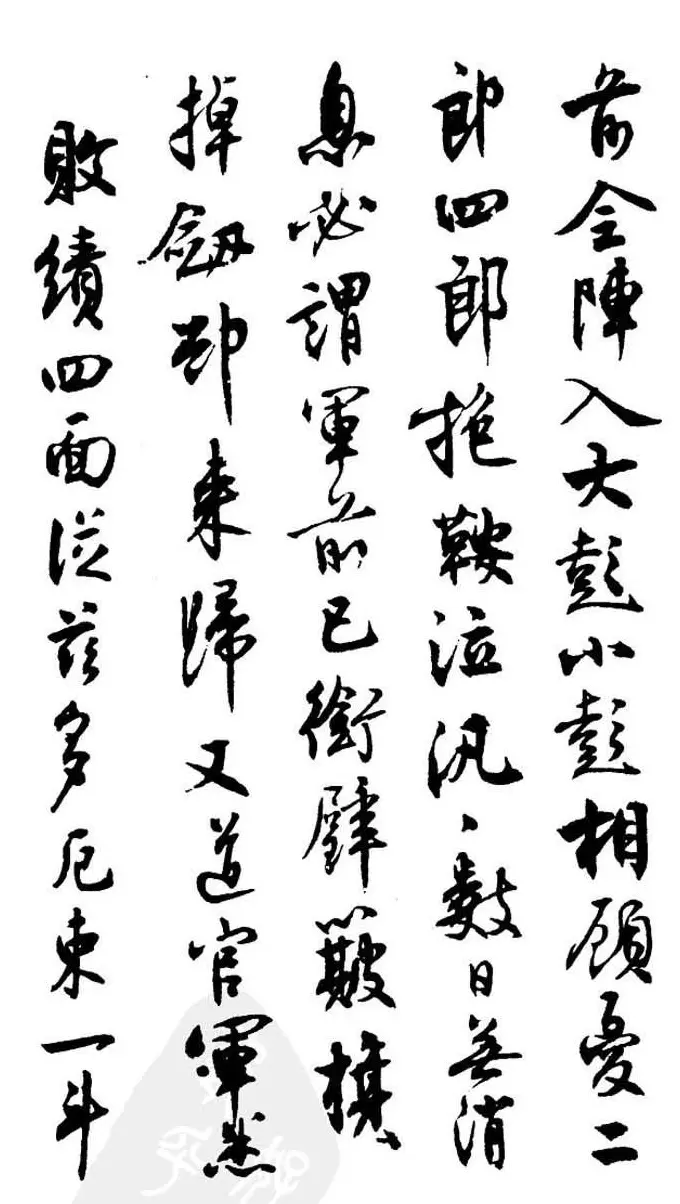 前全陣入大彭小彭相顧憂二
郎四郎抱鞍泣汎、數日無消
息必謂軍前已銜璧簸旗
掉劔却来歸又道官軍悉
敗績四面從茲多厄束一斗